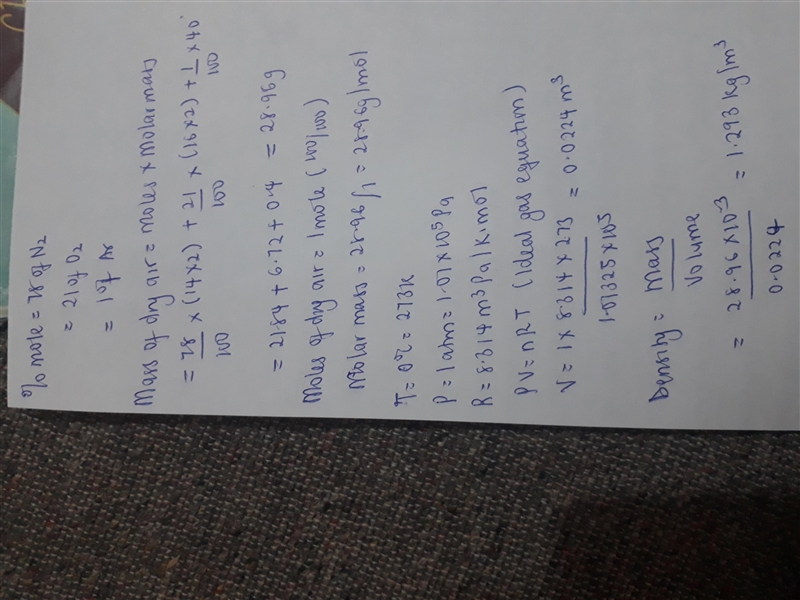 % mole = 78% N2
= 21% O2
= 1% Ar
Mass of dry air = moles x molar mass
= 78/100 x (14x2) + 21/100 x (16x2) + 1/100 x 40
= 21.84 + 6.72 + 0.4 = 28.96g
Moles of dry air = 1 mole (100/100)
Molar mass = 28.96/1 = 28.96g/mol
T = 0°C = 273K
P = 1 atm = 1.01 x 10^5 Pa
R = 8.314 m3 Pa/K.mol
PV = nRT (Ideal gas equation)
V = 1 x 8.314 x 273 / 1.01325 x 10^5 = 0.0224 m3
Density = Mass / Volume
= 28.96 x 10^-3 / 0.0224 = 1.293 kg/m3